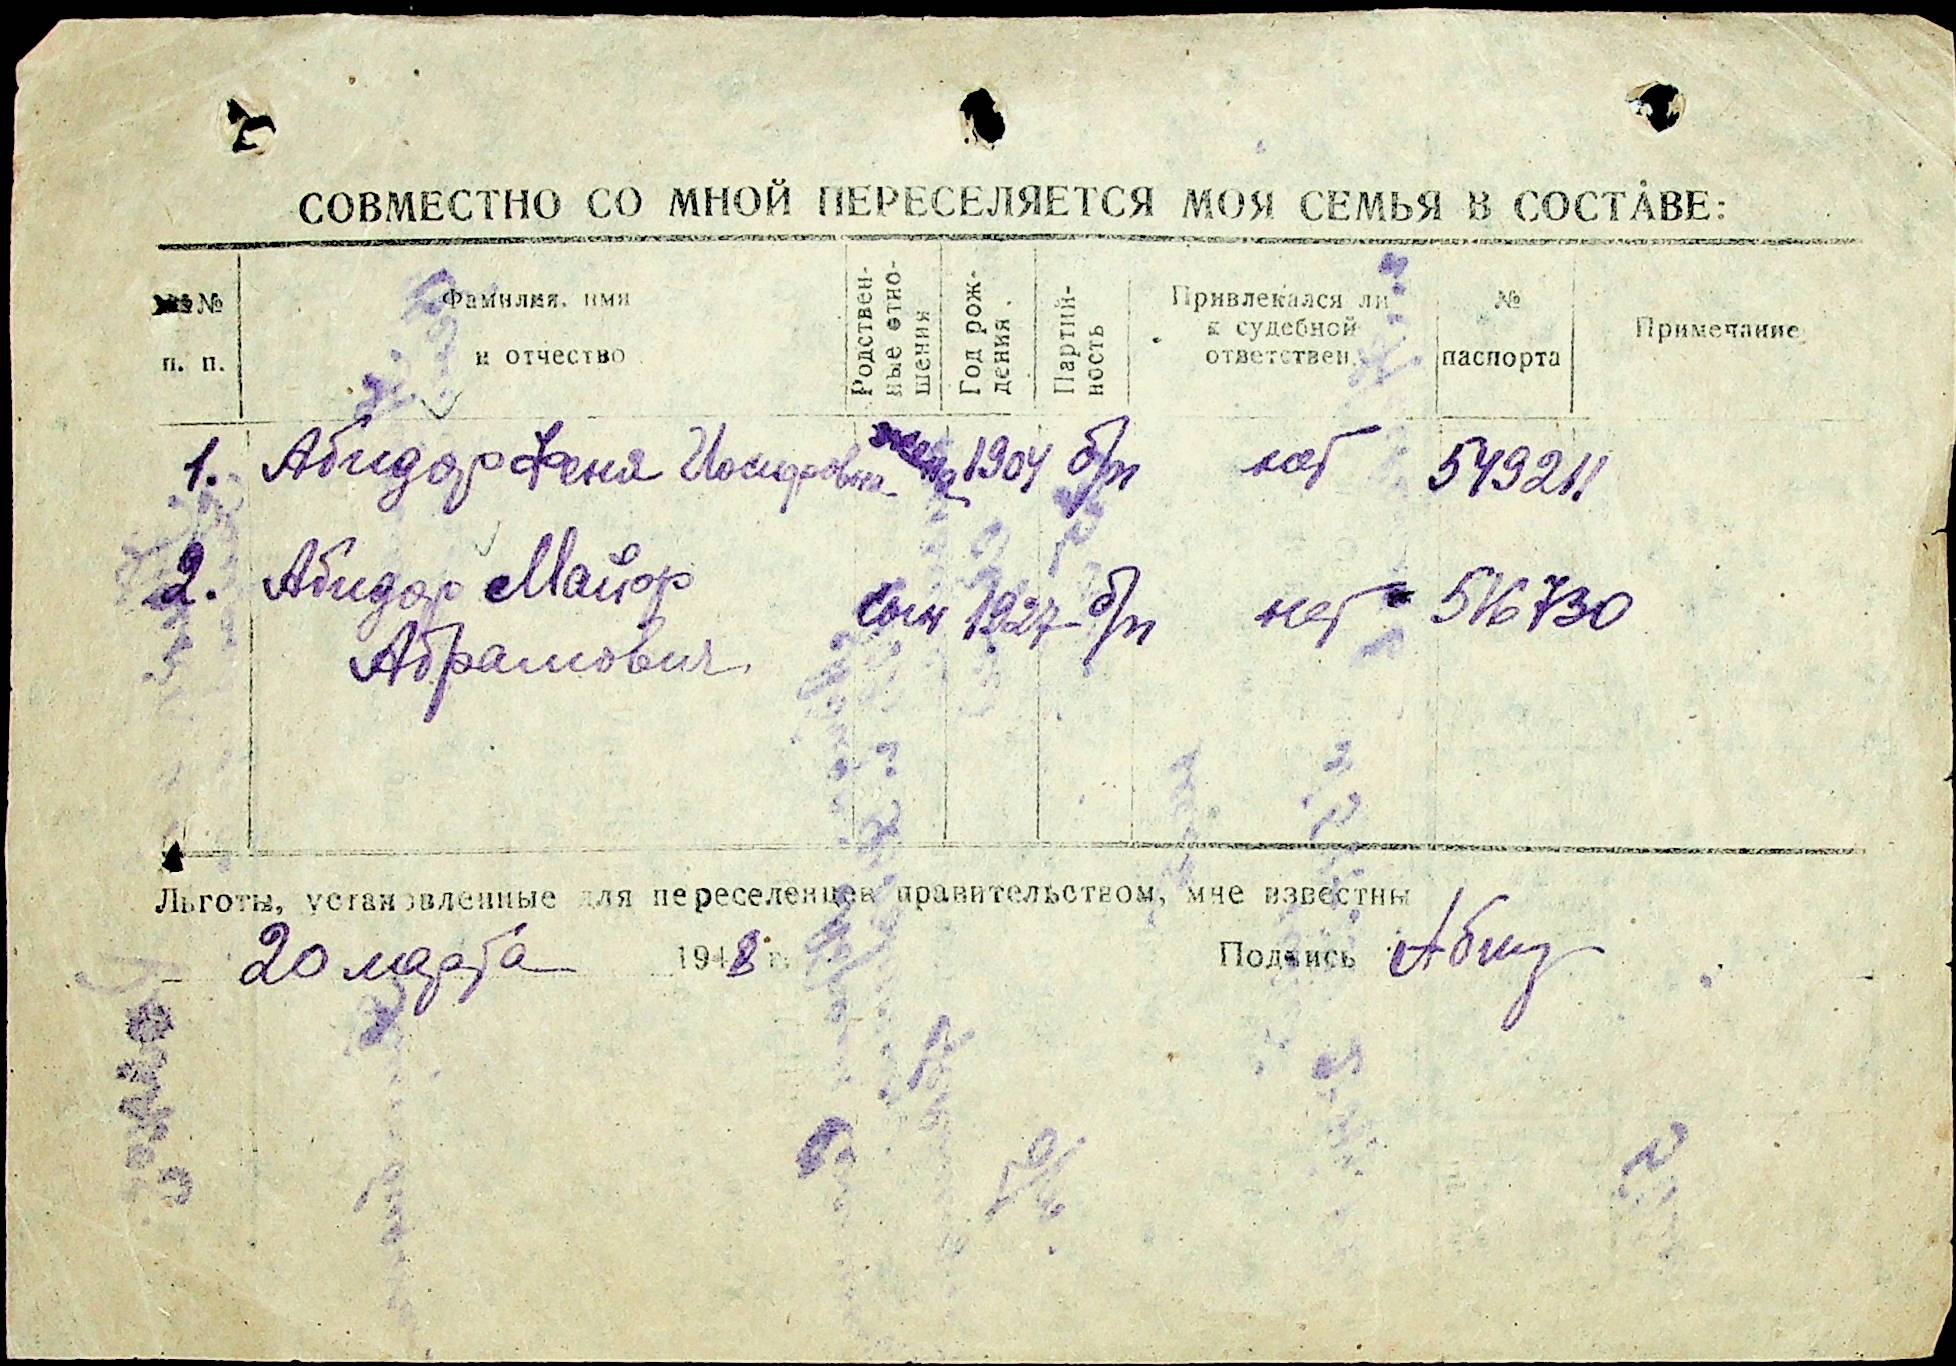 СОВМЕСТНО СО МНОЙ ПЕРЕСЕЛЯЕТСЯ МОЯ СЕМЬЯ В СОСТАВЕ:
№№ п. п.
Фамилия, имя и отчество
Родственные отношения
Год рождения
Партийность
Привлекался ли к судебной ответствен.
№ паспорта
Примечание
1. Абидор Феня Иосифовна жена 1904 б/п нет 549211
2. Абидор Майор сын 1927 б/п нет 516730
Абрамович
Льготы, установленные для переселенцев правительством, мне известны
20 марта 1948 г. Подпись Абид